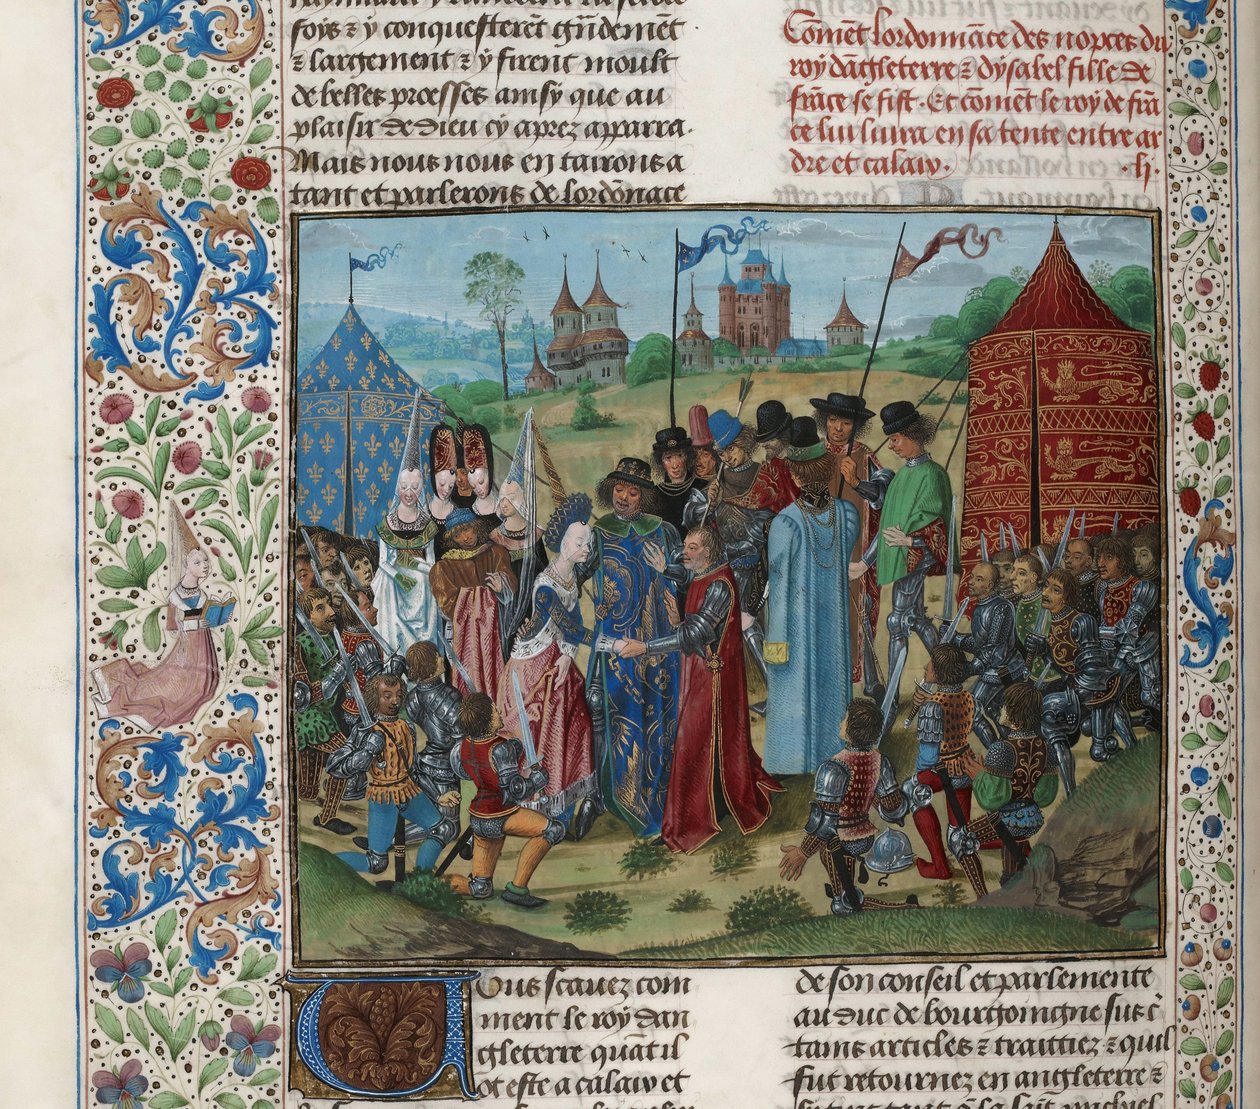 foys ⁊ y conquesterēt grādemēt
⁊ largement ⁊ y firent moult
de belles proesses ainsy que au
plaisir de dieu cy aprez apparra.
Mais nous nous en tairons a
tant et parlerons de lordōnāce
Comēt lordonnāce des nopces du
roy dāgleterre ⁊ dysabel fille de
frāce se fist. Et cōmēt le roy de frā
ce lui liura en sa tente entre ar
dre et calaix.
Ous scauez com
ment le roy dan
gleterre quāt il
ot este a calaix et
de son conseil et parlemente
au duc de bourgoingne sus c̄
tains articles ⁊ traittiez ⁊ quil
fut retournez en angleterre ⁊